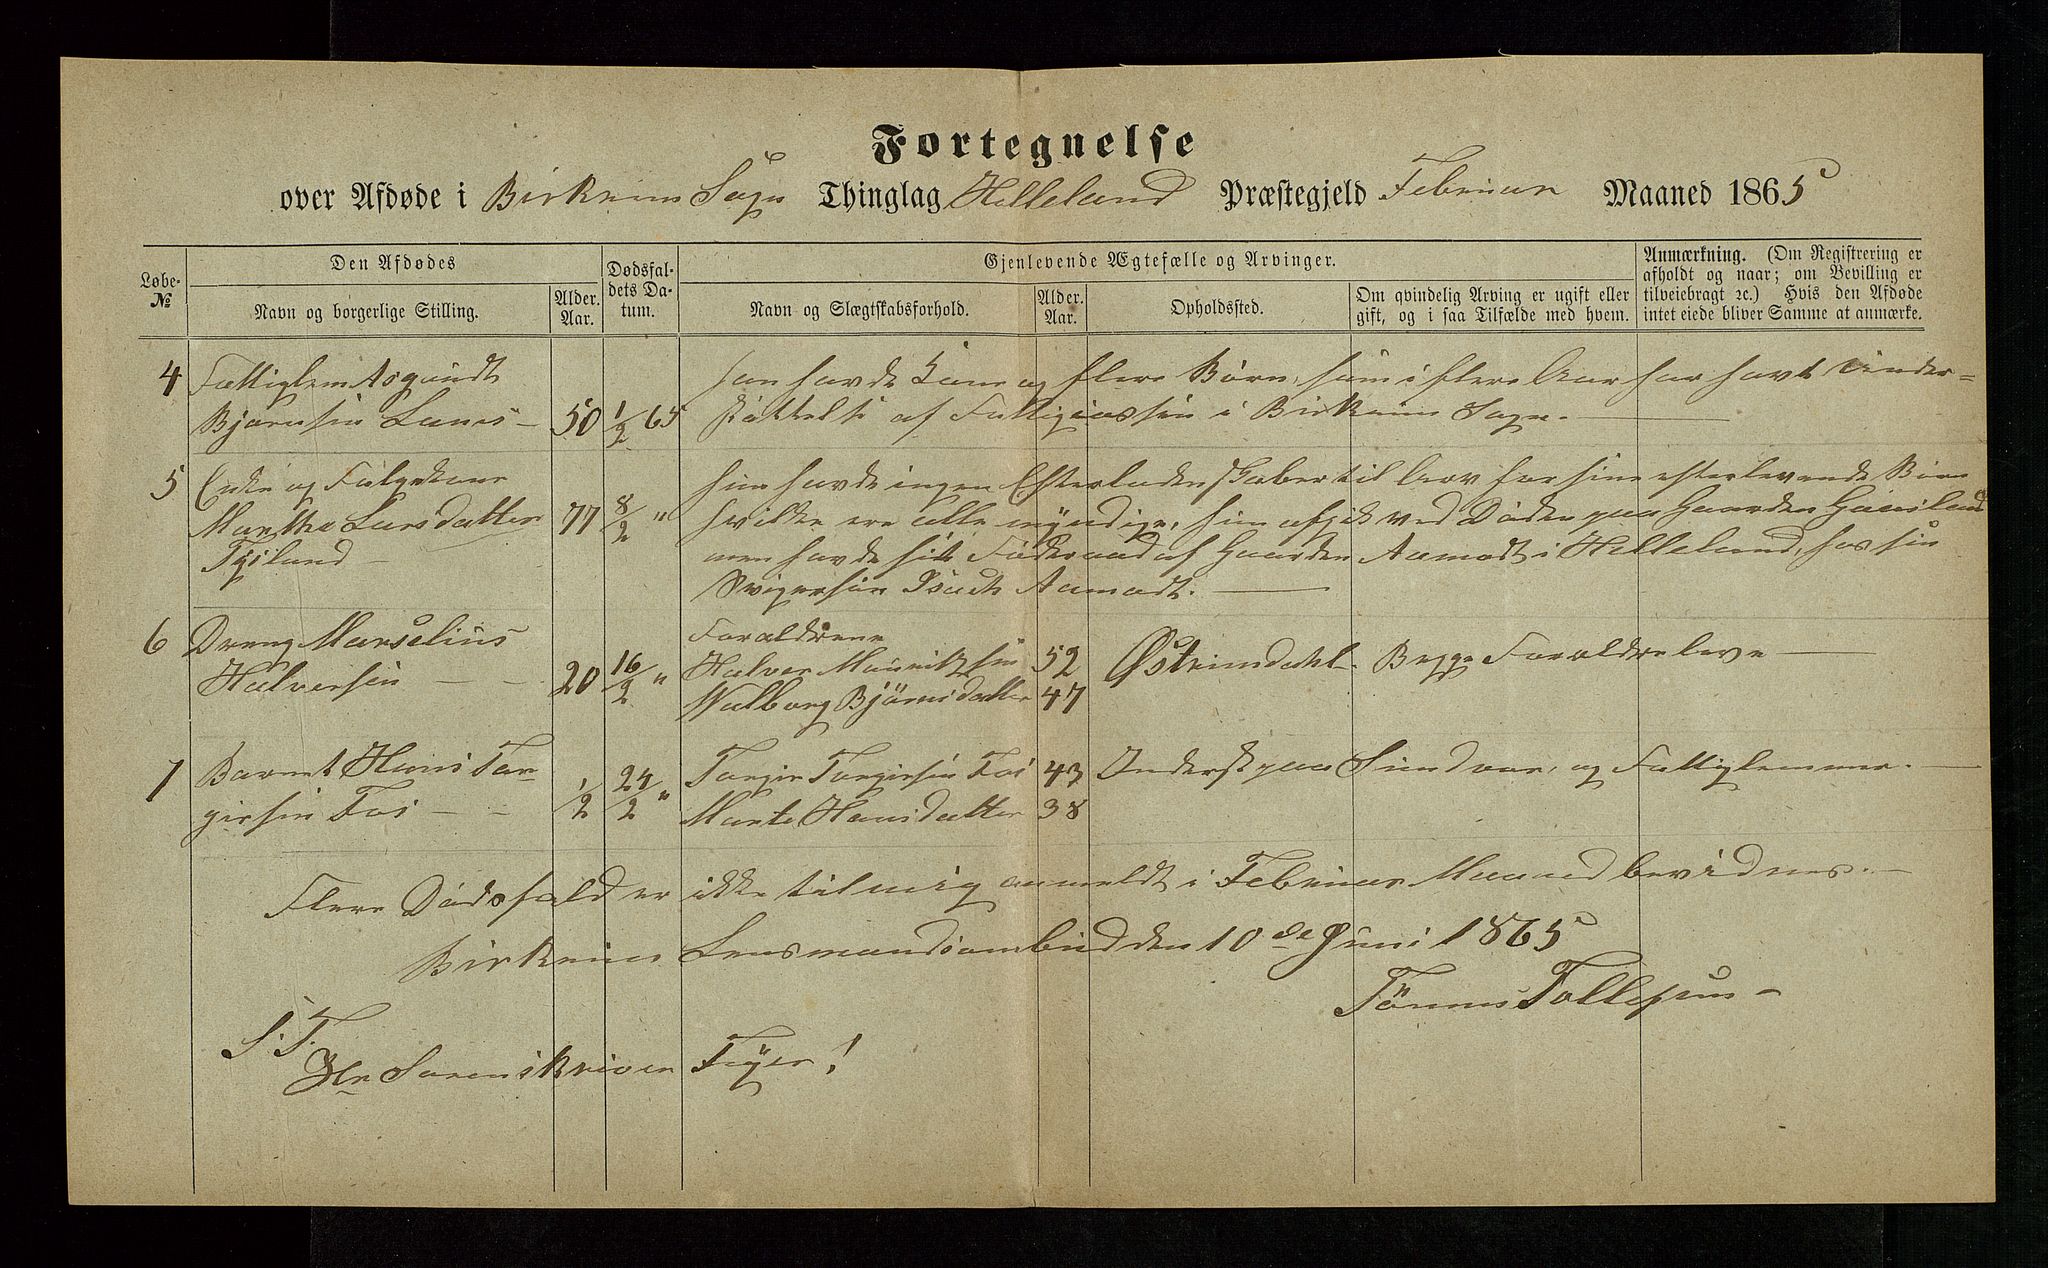 Fortegnelse
over Afdøde i Birkrims Sogn Thinglag Helleland Præstegjeld Februar Maaned 1865
Løbe-
№
Den Afdødes
Navn og borgerlige Stilling.
Alder.
Aar.
Dødsfal-
dets Da-
tum.
Gjenlevende Ægtefælle og Arvinger.
Navn og Slægtskabsforhold.
Alder.
Aar.
Opholdssted.
Om qvindelig Arving er ugift eller
gift, og i saa Tilfælde med hvem.
Anmærkning. (Om Registrering er
afholdt og naar; om Bevilling er
tilveiebragt ꝛc.) Hvis den Afdøde
intet eiede bliver Samme at anmærke.
4 Fattiglem Asgundt han havde Kone og flere Børn, som i flere Aar har havt Under=
Bjørnsen 50 1/2 65 støttelse af Fattigkassen i Birkrims Sogn.
5 Enke og Følgekone hun havde ingen Efterladenskaber til Arv for sine efterlevende Børn
Marthe Larsdatter 77 8/2 " hvilke ere alle myndige, hun afgik ved Døden paa Gaarden
Tysland men havde sit Føderaad af Gaarden Aamodt i Helleland, hos sin
Svigersøn Isach Aamodt.
6 Dreng Marselius Forældrene
Halversen 20 16/2 " Halver 52 Østrimdahl Begge Forældre leve
Walborg Bjørnsdatter 47
7 Barnet Hans Tor- Torger Torgersen Fos 43 Inderst paa og Fattiglemmer.
gersen Fos 1/2 24/2 " Marte Hansdatter 38
Flere Dødsfald er ikke til mig anmeldt i Februar Maaned bevidnes.
Birkrims Lensmandsombud den 10de Juni 1865
Tönnes Tollefsen
S. T.
Hr Sorenskriver Feyer!